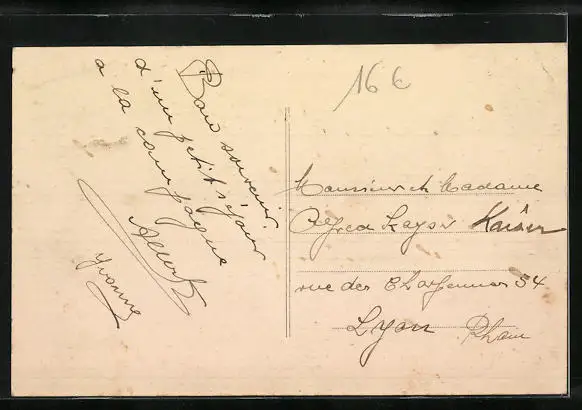 Bon souvenir
d'un petit séjour
a la campagne
Albert
Yvonne
16 €
Monsieur et Madame
Alfred Kayser Kaiser
rue des Charpennes 54
Lyon Rhône